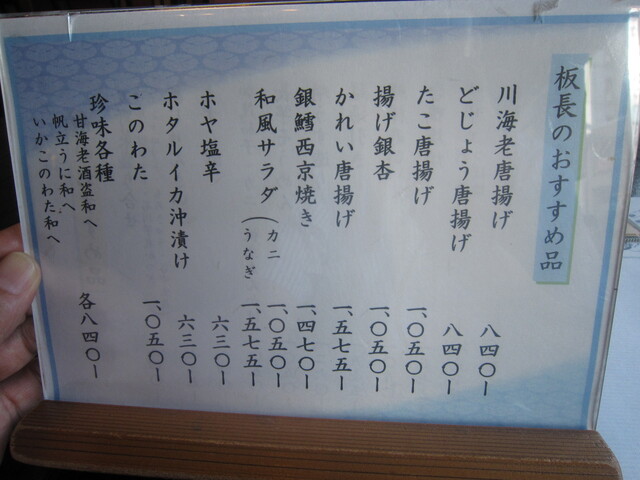 板長のおすすめ品
川海老唐揚げ 八四〇ー
どじょう唐揚げ 八四〇ー
たこ唐揚げ 一、〇五〇ー
揚げ銀杏 一、〇五〇ー
かれい唐揚げ 一、五七五ー
銀鱈西京焼き 一、四七〇ー
和風サラダ（カニ 一、〇五〇ー
うなぎ 一、五七五ー
ホヤ塩辛 六三〇ー
ホタルイカ沖漬け 六三〇ー
このわた 一、〇五〇ー
珍味各種 各八四〇ー
甘海老酒盗和へ
帆立うに和へ
いかこのわた和へ